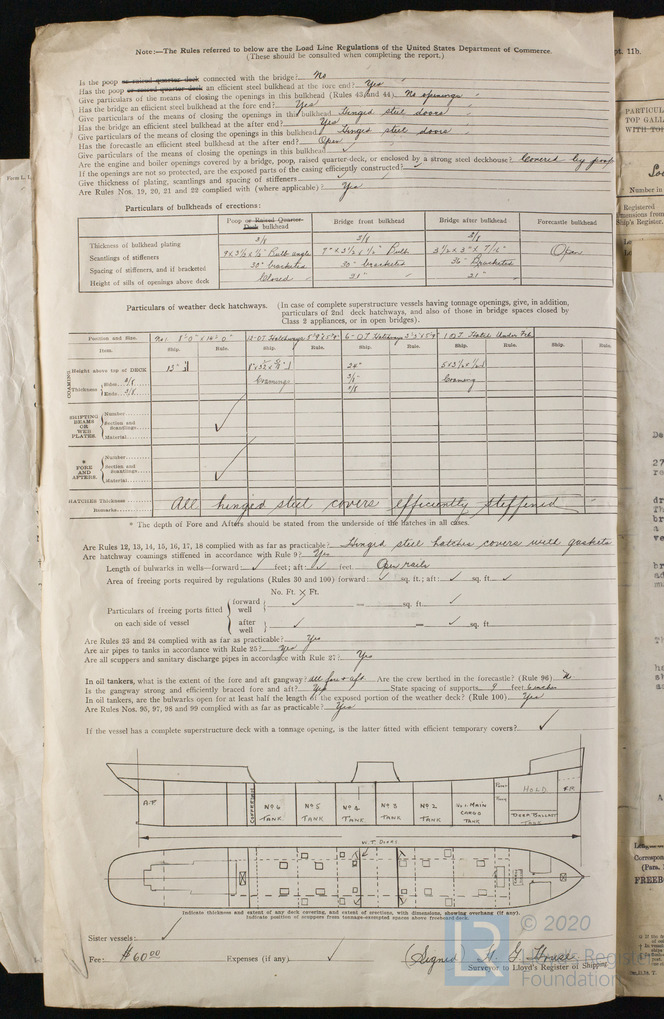 Note:—The Rules referred to below are the Load Line Regulations of the United States Department of Commerce.
(These should be consulted when completing the report.)
Is the poop or raised quarter deck connected with the bridge? No
Has the poop or raised quarter deck an efficient steel bulkhead at the fore end? Yes
Give particulars of the means of closing the openings in this bulkhead (Rules 43 and 44) No openings
Has the bridge an efficient steel bulkhead at the fore end? Yes
Give particulars of the means of closing the openings in this bulkhead Hinged steel doors
Has the bridge an efficient steel bulkhead at the after end? Yes
Give particulars of the means of closing the openings in this bulkhead Hinged steel doors
Has the forecastle an efficient steel bulkhead at the after end? Open
Give particulars of the means of closing the openings in this bulkhead
Are the engine and boiler openings covered by a bridge, poop, raised quarter-deck, or enclosed by a strong steel deckhouse? Covered by poop
If the openings are not so protected, are the exposed parts of the casing efficiently constructed?
Give thickness of plating, scantlings and spacing of stiffeners
Are Rules Nos. 19, 20, 21 and 22 complied with (where applicable)? Yes
Particulars of bulkheads of erections:
Poop or Raised Quarter-Deck bulkhead Bridge front bulkhead Bridge after bulkhead Forecastle bulkhead
Thickness of bulkhead plating 3/8 3/8 3/8
Scantlings of stiffeners 9 x 3½ x ½" Bulb angle 7" x 3½ x ½" Bulb 3½ x 3" x 7/16" Open
Spacing of stiffeners, and if bracketed 30" bracketed 30" bracketed 36" Bracketed
Height of sills of openings above deck Closed 21" 21"
Particulars of weather deck hatchways. (In case of complete superstructure vessels having tonnage openings, give, in addition,
particulars of 2nd deck hatchways, and also of those in bridge spaces closed by
Class 2 appliances, or in open bridges).
Position and Size. No 1 12-OT Hatchways 6-OT Hatchways 1 OT Hatch Under Fcl
Item. Ship. Rule. Ship. Rule. Ship. Rule. Ship. Rule. Ship. Rule.
COAMING Height above top of DECK 24"
Thickness Sides 3/8 Coamings 3/8 Coaming
Ends 3/8 3/8
SHIFTING BEAMS OR WEB PLATES. Number
Section and Scantlings
Material
* FORE AND AFTERS. Number
Section and Scantlings
Material
HATCHES Thickness
Remarks All hinged steel covers efficiently stiffened
* The depth of Fore and Afters should be stated from the underside of the hatches in all cases.
Are Rules 12, 13, 14, 15, 16, 17, 18 complied with as far as practicable? Hinged steel hatches covers with gaskets
Are hatchway coamings stiffened in accordance with Rule 9? Yes
Length of bulwarks in wells—forward: feet; aft: feet. Open rails
Area of freeing ports required by regulations (Rules 30 and 100) forward: sq. ft.; aft: sq. ft.
No. Ft. × Ft.
Particulars of freeing ports fitted on each side of vessel
forward well = sq. ft.
after well = sq. ft.
Are Rules 23 and 24 complied with as far as practicable? Yes
Are air pipes to tanks in accordance with Rule 25? Yes
Are all scuppers and sanitary discharge pipes in accordance with Rule 27? Yes
In oil tankers, what is the extent of the fore and aft gangway? all fore & aft Are the crew berthed in the forecastle? (Rule 96) No
Is the gangway strong and efficiently braced fore and aft? Yes State spacing of supports 9 feet 6 inches
In oil tankers, are the bulwarks open for at least half the length of the exposed portion of the weather deck? (Rule 100) Yes
Are Rules Nos. 95, 97, 98 and 99 complied with as far as practicable? Yes
If the vessel has a complete superstructure deck with a tonnage opening, is the latter fitted with efficient temporary covers?
A.P.
COFFERDAM
No 6 TANK
No 5 TANK
No 4 TANK
No 3 TANK
No 2 TANK
No 1 MAIN CARGO TANK
HOLD
DEEP BALLAST TANK
F.P.
W.T. DOORS
Indicate thickness and extent of any deck covering, and extent of erections, with dimensions, showing overhang (if any).
Indicate position of scuppers from tonnage-exempted spaces above freeboard deck.
Sister vessels:
Fee: $60.00 Expenses (if any) (Signed) H. G. House
Surveyor to Lloyd's Register of Shipping
© 2020
LR
Lloyd's Register
Foundation
pt. 11b.
PARTICUL
TOP GALL
Number in
Registered
Ship's Register.
Correspon
(Para.
FREEB